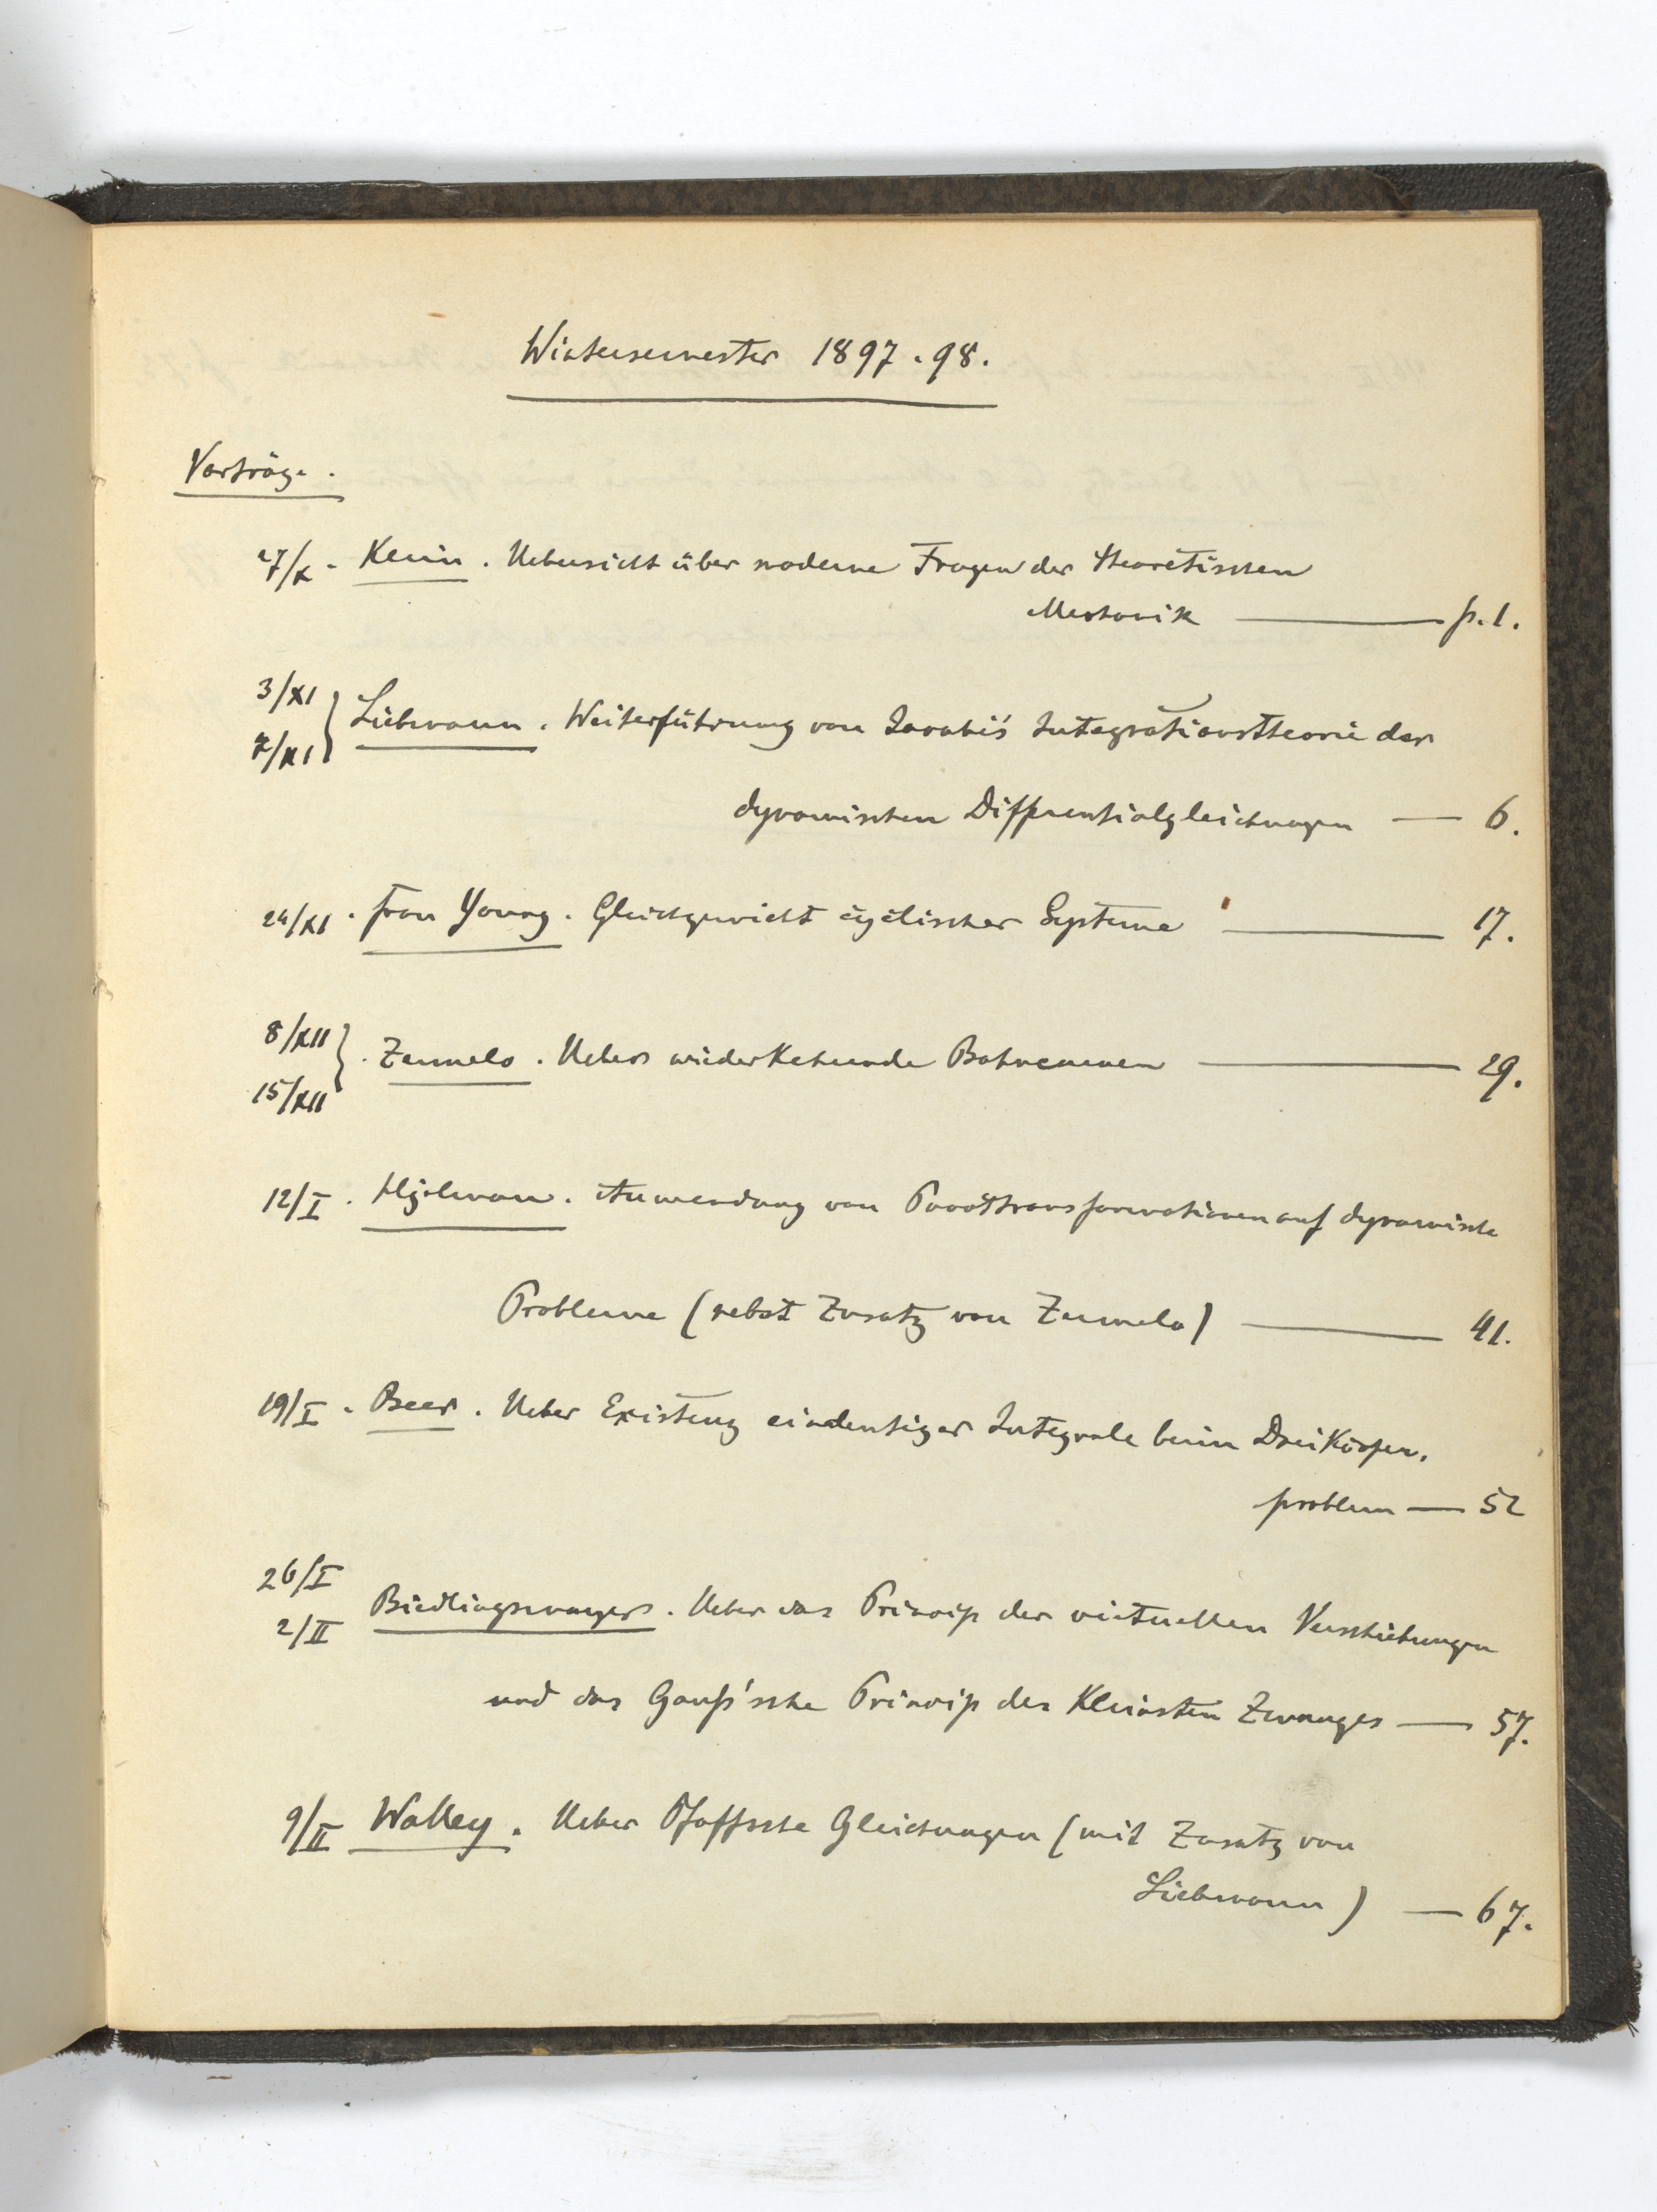 Wintersemester 1897.98.
Vorträge.
27/X. Klein. Uebersicht über moderne Fragen der theoretischen
Mechanik — p. 1.
3/XI
7/XI } Liebmann. Weiterführung von Jacobi's Integrationstheorie der
dynamischen Differentialgleichungen — 6.
24/XI. Frau Young. Gleichgewicht cyclischer Systeme — 17.
8/XII
15/XII } . Zermelo. Ueber wiederkehrende Bahncurven — 29.
12/I. Anwendung von Punkttransformationen auf dynamische
Probleme (nebst Zusatz von Zermelo) — 41.
19/I. Beer. Ueber Existenz eindeutiger Integrale beim Dreikörper.
problem — 52
26/I
2/II Bidlingmayer. Ueber das Princip der virtuellen Verschiebungen
und das Gauß'sche Princip des Kleinsten Zwanges — 57.
9/II Walley. Ueber Pfaffsche Gleichungen (mit Zusatz von
Liebmann) — 67.